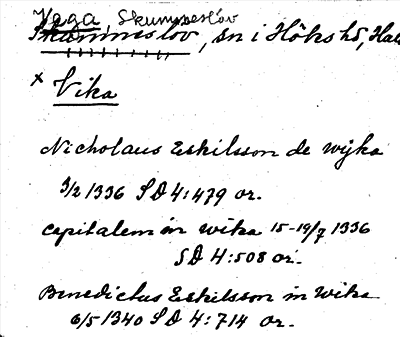 Yaga, Skummeslöv
Skummeslöv, sn i Höks hd, Hall
x Vika
Nicholaus Eskilsson de wijka
3/2 1336 SD 4:479 or.
capitalem in wika 15-19/7 1336
SD 4:508 or.
Benedictus Eskilsson in Wika
6/5 1340 SD 4:714 or.